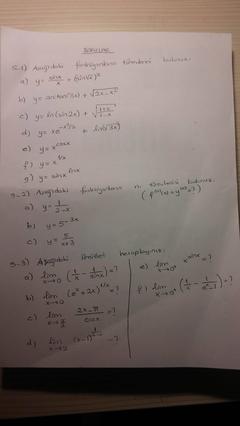 SORULAR
S-1) Aşağıdaki fonksiyonların türevlerini bulunuz.
a) y = sinx/x + (sin√2)^x
b) y = arctan(3x) + √(2x-x²)
c) y = ln(sin2x) + √((1+x)/(1-x))
d) y = xe^(-x²/2) + ln(√3x)
e) y = x^cosx
f) y = x^(1/x)
g) y = sinx^lnx
S-2) Aşağıdaki fonksiyonların n. türevlerini bulunuz. (f^(n)(x) = y^(n) = ?)
a) y = 1/(2-x)
b) y = 5^(-3x)
c) y = 5/(x+3)
S-3) Aşağıdaki limitleri hesaplayınız.
a) lim x→0 (1/x - 1/sinx) = ?
b) lim x→0 (e^x + 2x)^(1/x) = ?
c) lim x→π/2 (2x-π)/cosx = ?
d) lim x→2 (x-1) = ?
e) lim x→0⁺ x^sinx = ?
f) lim x→0⁺ (1/x - 1/(e^x-1)) = ?